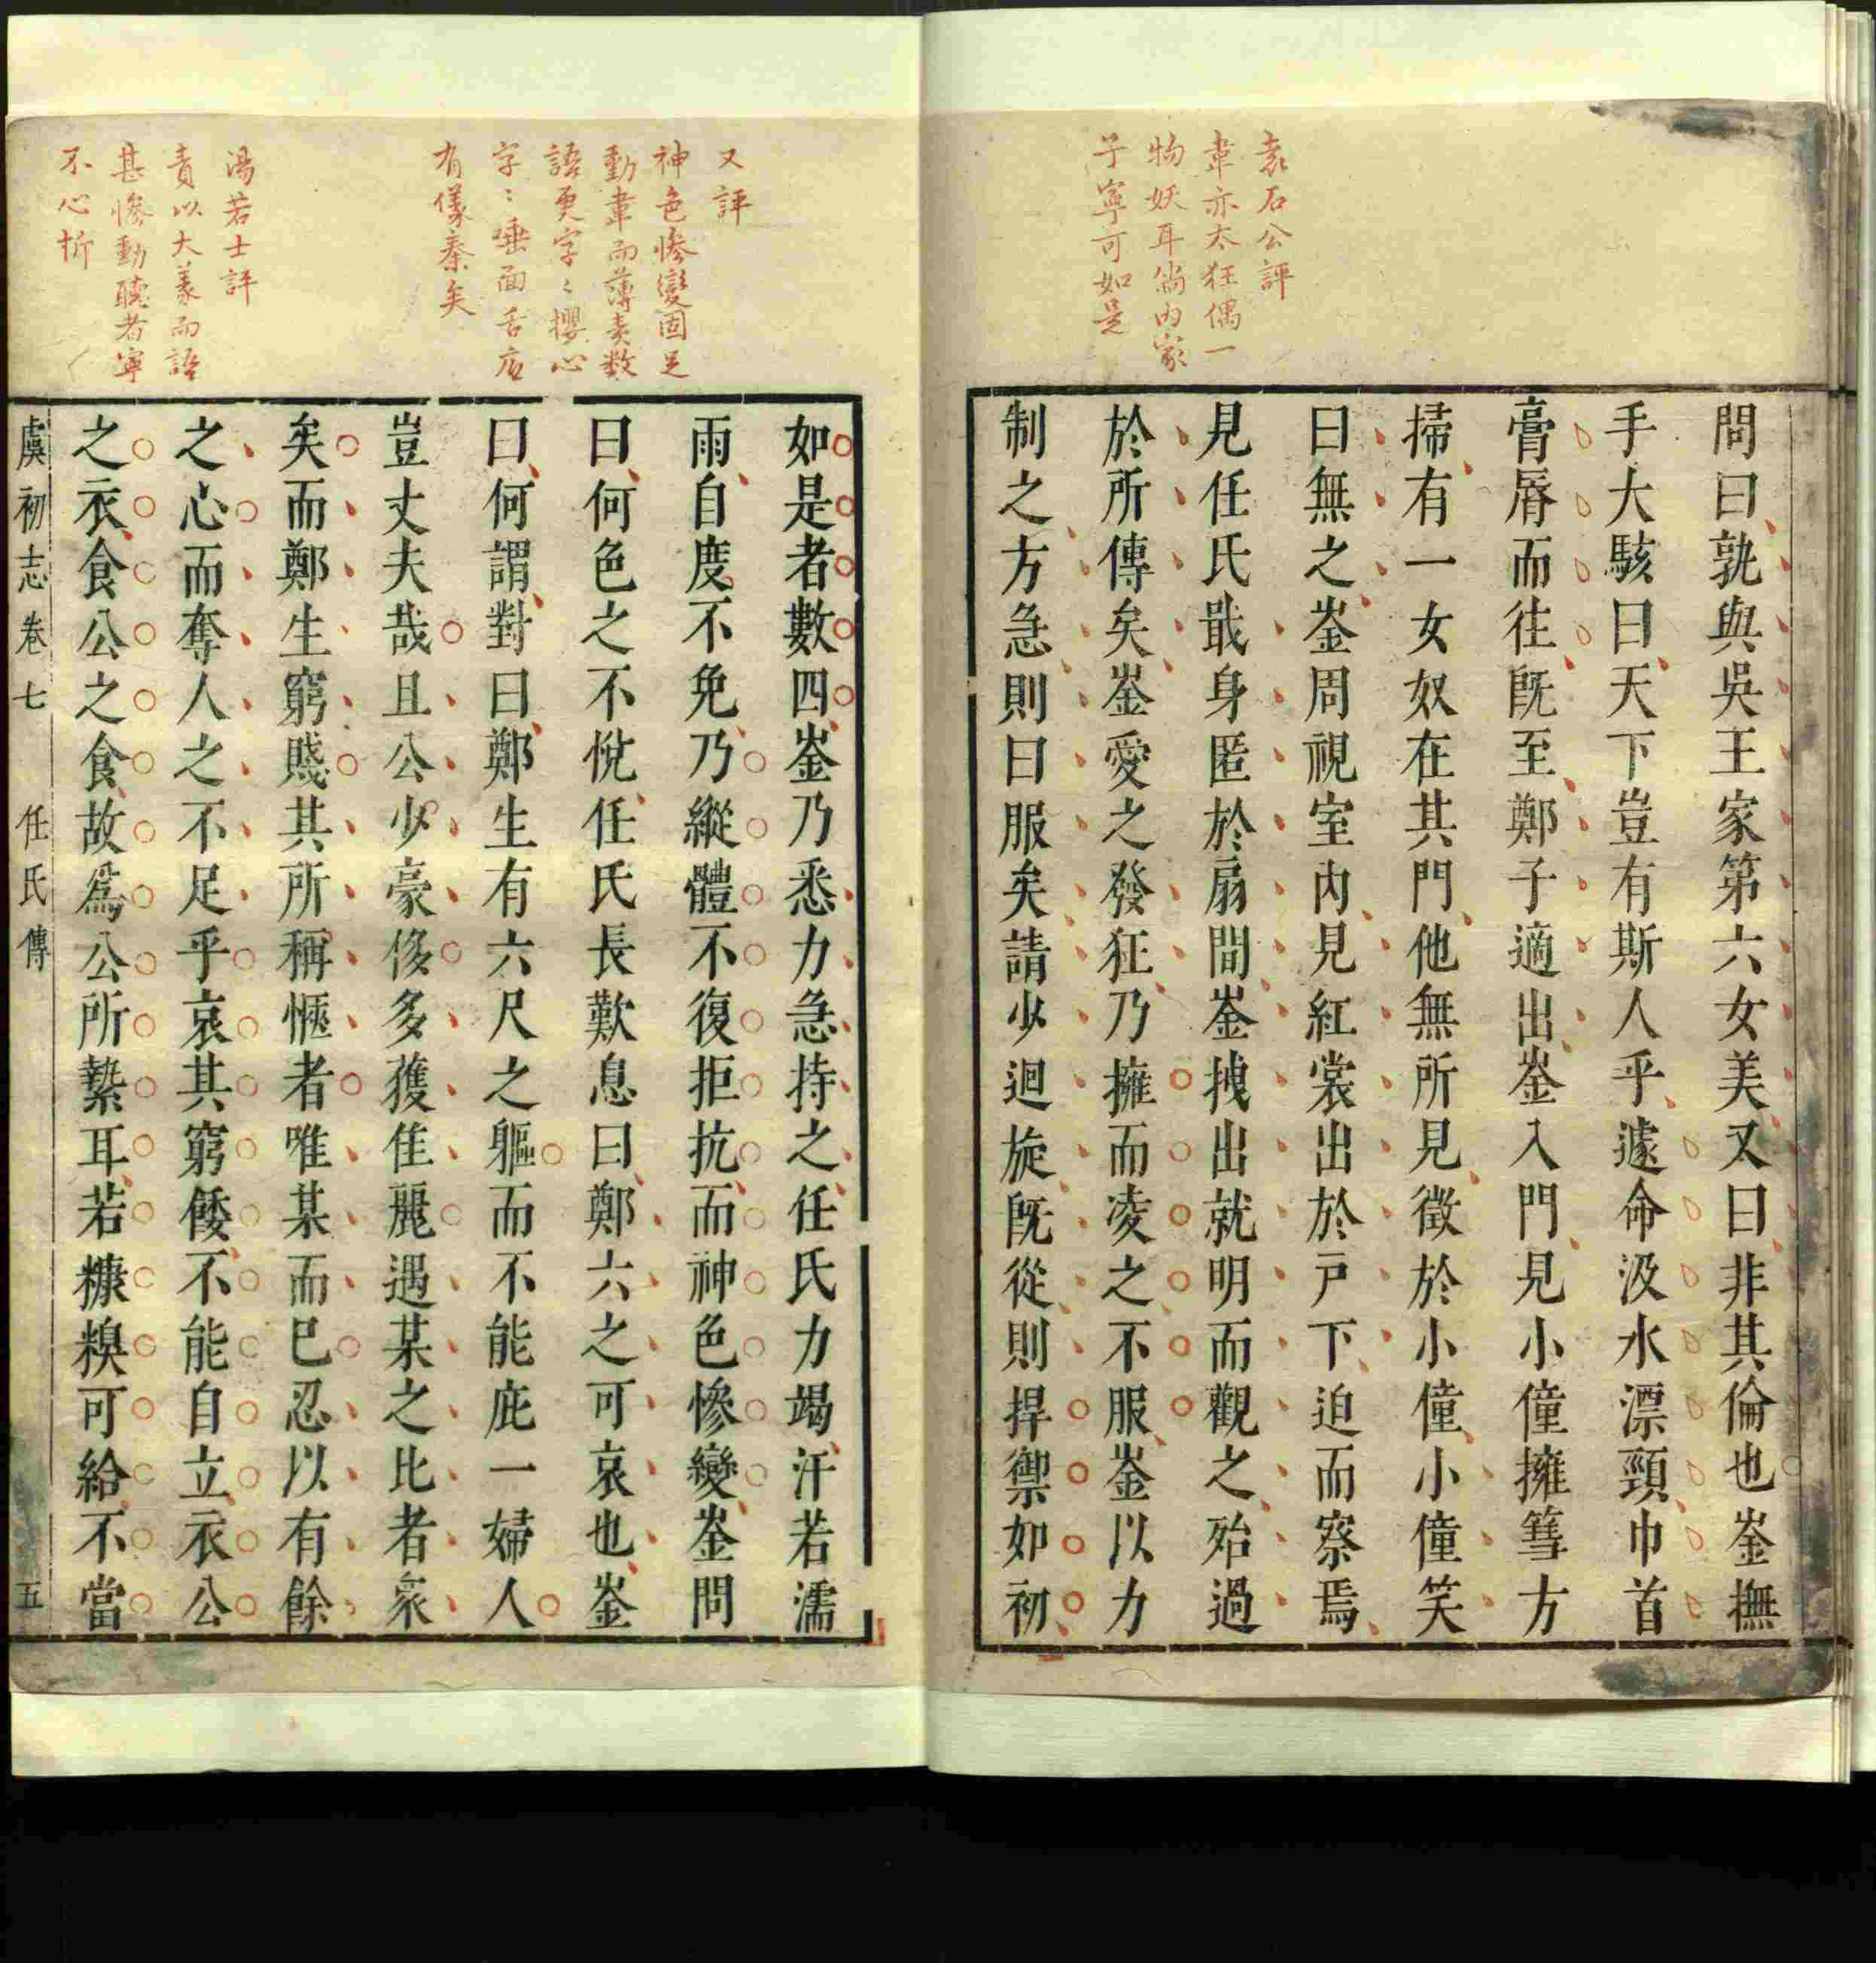 袁石公評
韋亦太狂偶一
物妖耳尚内家
子寧可如是
問曰孰與吳王家第六女美又曰非其倫也崟撫
手大駭曰天下豈有斯人乎遽命汲水漂頸巾首
膏脣而往旣至鄭子適出崟入門見小僮擁篲方
掃有一女奴在其門他無所見徵於小僮小僮笑
曰無之崟周視室內見紅裳出於戶下迫而察焉
見任氏戢身匿於扇間崟拽出就明而觀之殆過
於所傳矣崟愛之發狂乃擁而凌之不服崟以力
制之方急則曰服矣請少迴旋旣從則捍禦如初
又評
神色慘變固足
動韋而薄責数
語更字〻攖心
字〻唾面舌底
有儀秦矣
湯若士評
責以大義而語
甚慘動聽者寧
不心折
如是者數四崟乃悉力急持之任氏力竭汗若濡
雨自度不免乃縱體不復拒抗而神色慘變崟問
曰何色之不悅任氏長歎息曰鄭六之可哀也崟
曰何謂對曰鄭生有六尺之軀而不能庇一婦人
豈丈夫哉且公少豪侈多獲佳麗遇某之比者衆
矣而鄭生窮賤其所稱愜者唯某而巳忍以有餘
之心而奪人之不足乎哀其窮餒不能自立衣公
之衣食公之食故爲公所縶耳若糠糗可給不當
虞初志卷七 任氏傳 五